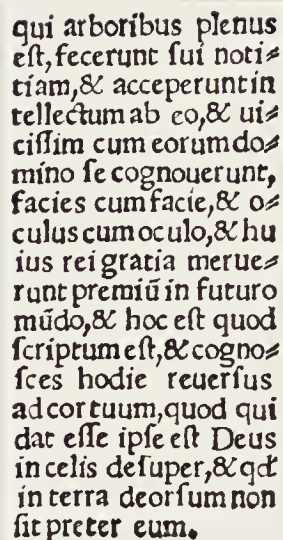 qui arboribus plenus
eſt, fecerunt ſui noti⸗
tiam,& acceperunt in
tellectum ab eo,& ui⸗
ciſſim cum eorum do⸗
mino ſe cognouerunt,
facies cum facie,& o⸗
culus cum oculo,& hu
ius rei gratia merue⸗
runt premiũ in futuro
mũdo,& hoc eſt quod
ſcriptum eſt,& cogno⸗
ſces hodie reuerſus
ad cor tuum, quod qui
dat eſſe ipſe eſt Deus
in celis deſuper,& qđ
in terra deorſum non
ſit preter eum.